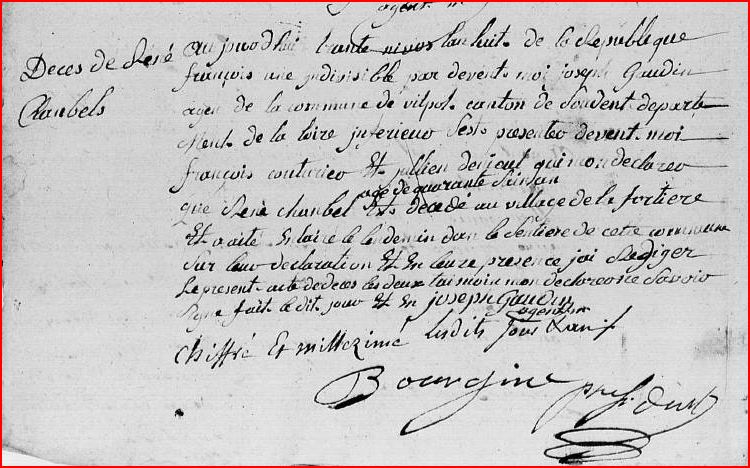 agent m
Deces de René
Chanbels
aujourdhui trante nivos lan huit de la Republique
françois une jndivisible par devent moi joseph Gaudin
agen de la commune de vilpot canton de Soudent departe
ment de la loire jnferieuro Sest presenteo devent moi
françois couturieo Et jullien qui mon declareo
age de quarante Sinsan
que René chanbel Est decedé au village de la fortiere
Et a aité Entaire le lendemin dan le Sentiere de cette commune
Sur leur declaration Et En leure presence jai Rediger
Le present acte de deces les deux taimoin mon declareo ne Savoio
Signe fait le dit jour et En joseph Gaudin
agent m
chiffré Et millezimé lesdits jour Et an
Bourgine presidant